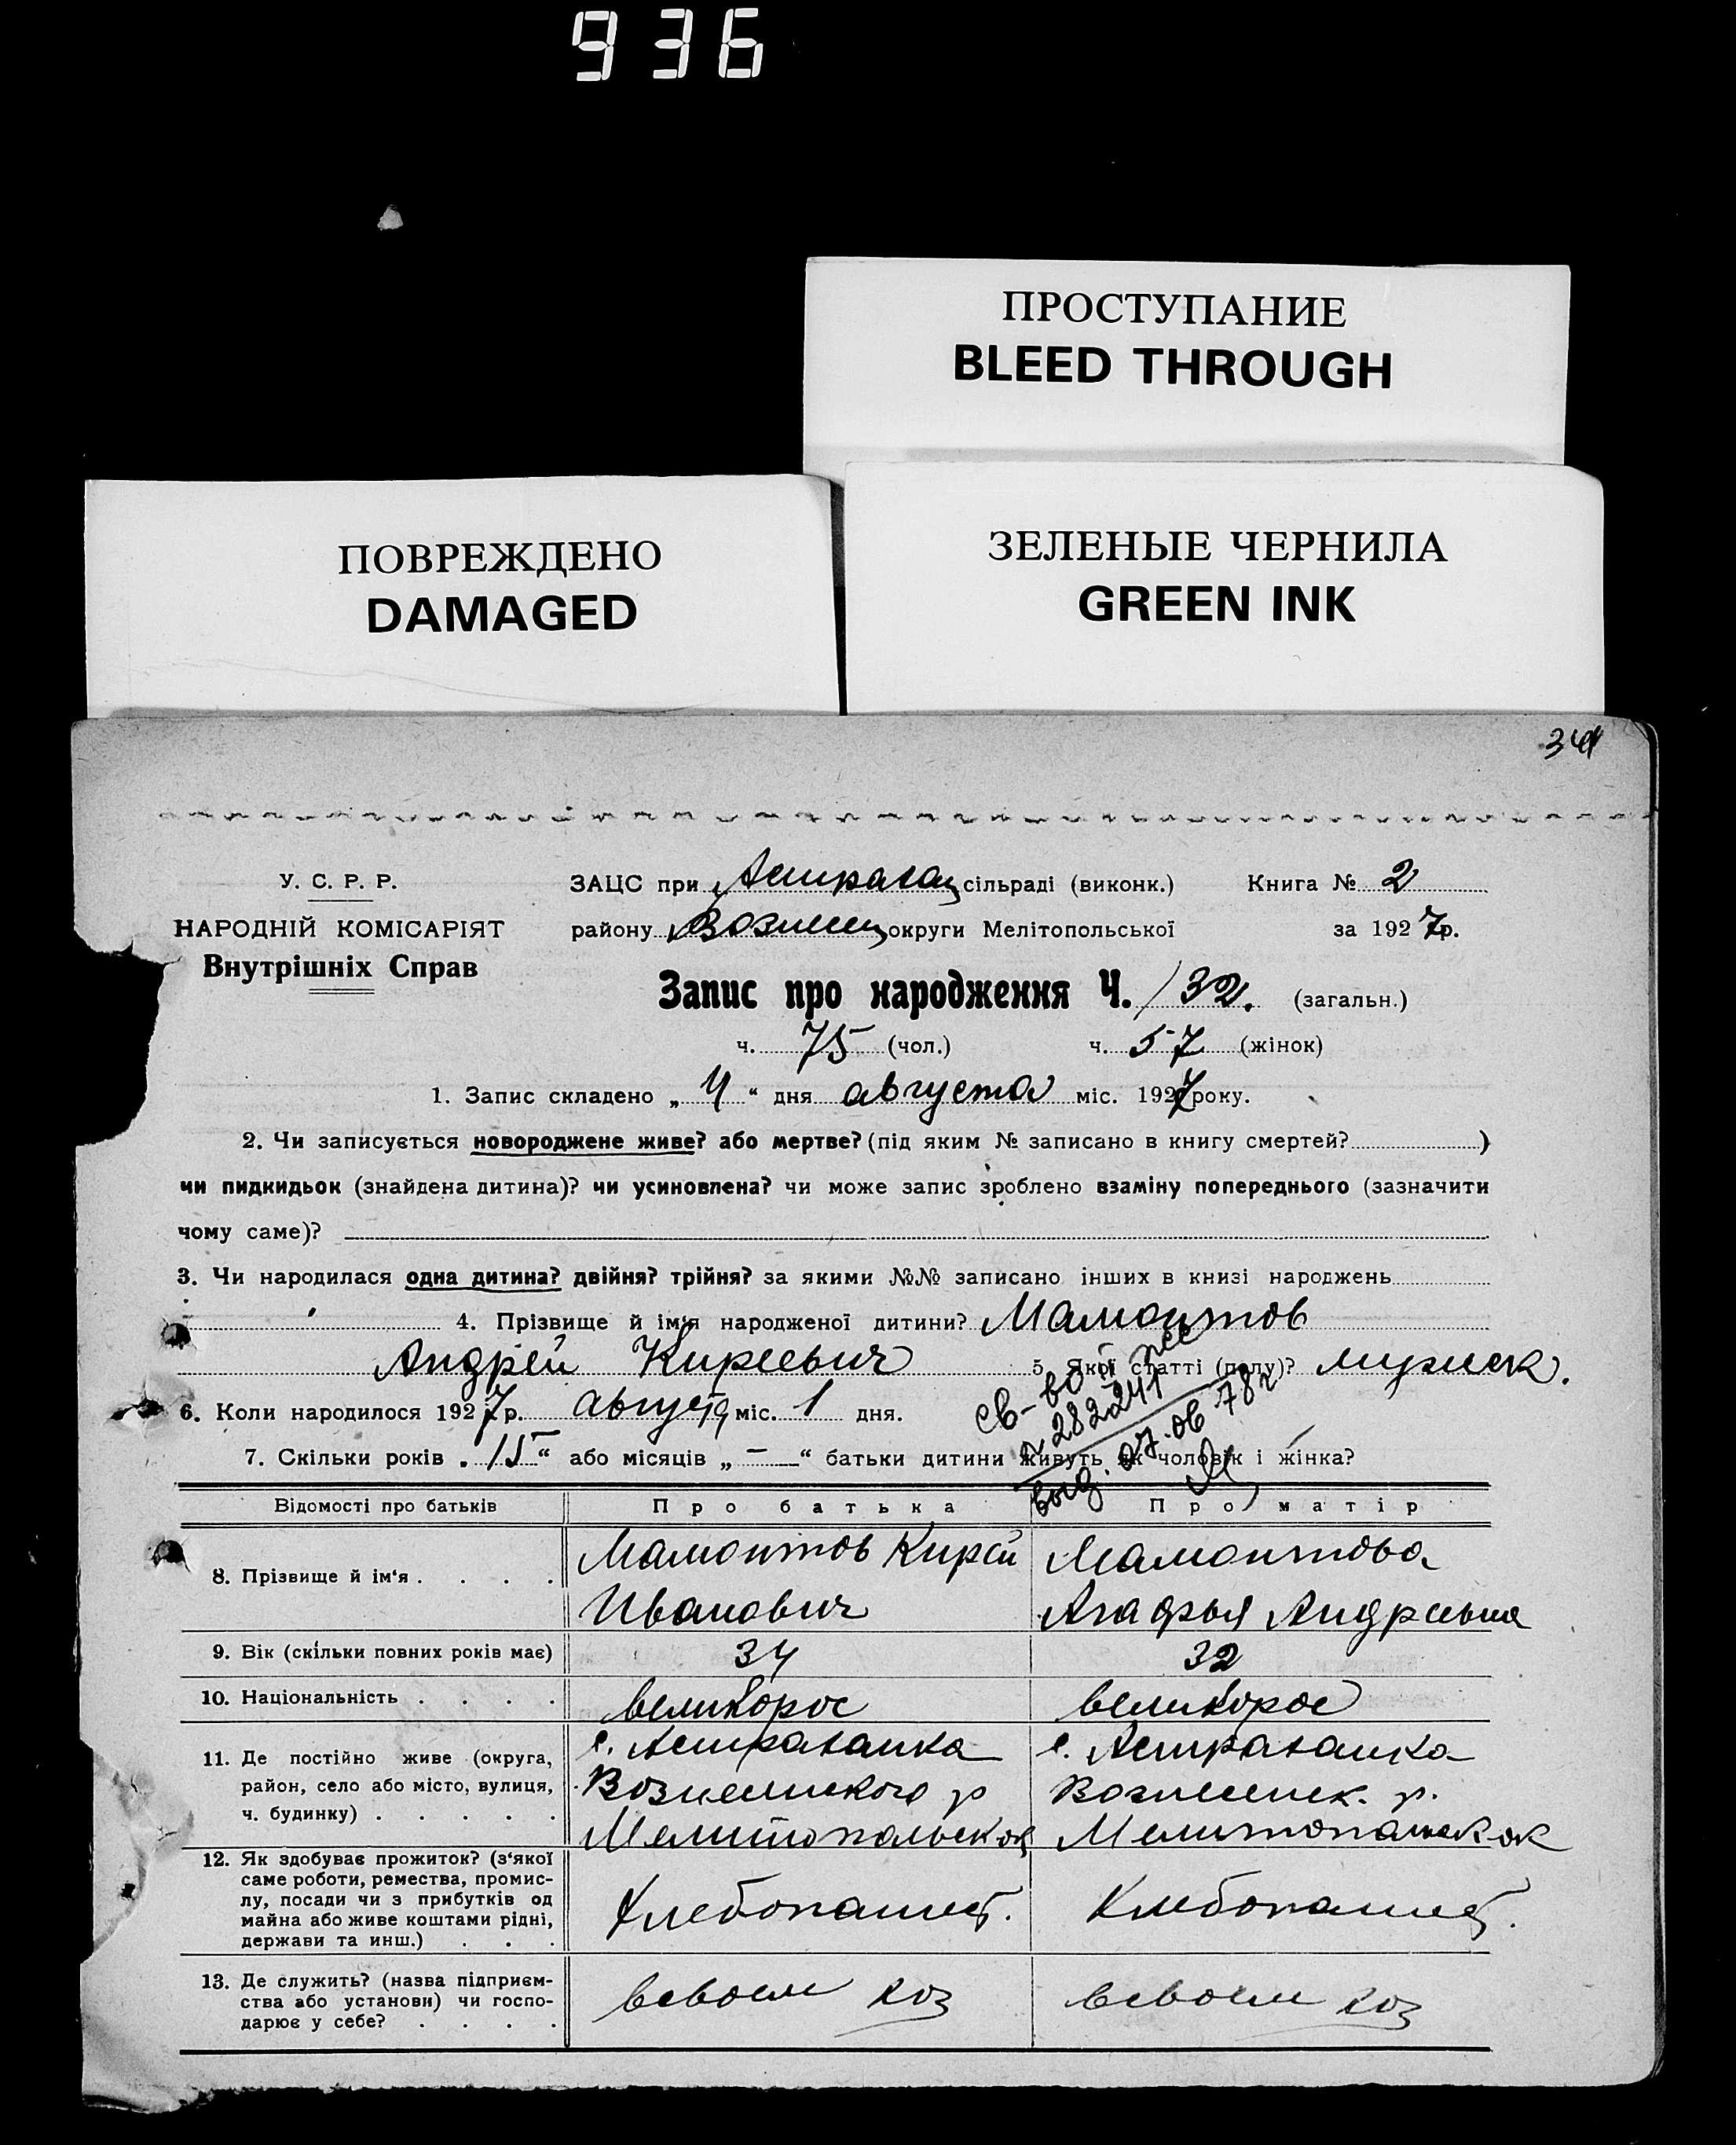 936
ПРОСТУПАНИЕ
BLEED THROUGH
ПОВРЕЖДЕНО
DAMAGED
ЗЕЛЕНЫЕ ЧЕРНИЛА
GREEN INK
У. С. Р. Р.
НАРОДНІЙ КОМІСАРІЯТ
Внутрішніх Справ
ЗАЦС при Астрахан сільраді (виконк.) Книга № 2
району Вознесен округи Мелітопольської за 1927р.
Запис про народження Ч. 132. (загальн.)
ч. 75 (чол.) ч. 57 (жінок)
1. Запис складено „ 4 “ дня августа міс. 1927 року.
2. Чи записується новороджене живе? або мертве? (під яким № записано в книгу смертей? )
чи пидкидьок (знайдена дитина)? чи усиновлена? чи може запис зроблено взаміну попереднього (зазначити
чому саме)?
3. Чи народилася одна дитина? двійня? трійня? за якими №№ записано інших в книзі народжень
4. Прізвище й ім'я народженої дитини? Мамонтов
Андрей Киреевич 5. Якої статті (полу)? мужеск.
6. Коли народилося 1927 р. август міс. 1 дня.
св-во
282241
выд. 07.06 78г
7. Скільки років „ 15 “ або місяців „ — “ батьки дитини живуть як чоловік і жінка?
Відомості про батьків Про батька Про матір
8. Прізвище й ім'я . . . . Мамонтов Кирей Мамонтова
Иванович Агафья Андреевна
9. Вік (скільки повних років має) 34 32
10. Національність . . . . великорос великорос
11. Де постійно живе (округа, район, село або місто, вулиця, ч. будинку) . . . . . с. Астраханка с. Астраханка
Вознесенского р Вознесенск. р.
Мелитопольск ок Мелитопольск ок
12. Як здобуває прожиток? (з'якої
саме роботи, ремества, промис-
лу, посади чи з прибутків од
майна або живе коштами рідні,
держави та инш.) . . . Хлебопашест. Хлебопашест.
13. Де служить? (назва підприєм-
ства або установи) чи госпо-
дарює у себе? . . . . всвоем хоз всвоем хоз